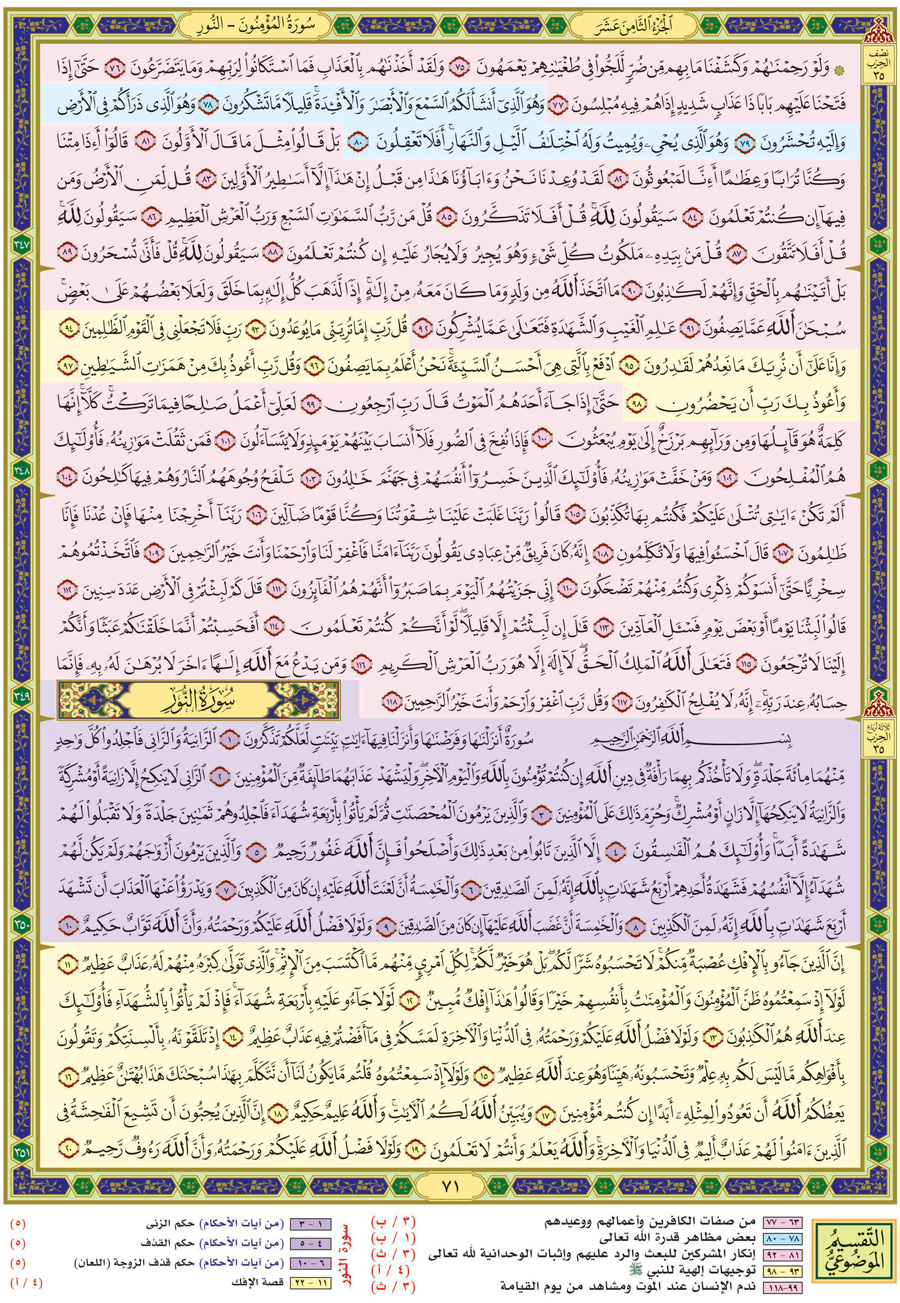 الجُزْءُ الثَّامِنَ عَشَرَ
سُورَةُ المُؤْمِنُونَ - النُّورِ
نِصْف الحِزْب ٣٥
۞ وَلَوْ رَحِمْنَٰهُمْ وَكَشَفْنَا مَا بِهِم مِّن ضُرٍّ لَّلَجُّوا۟ فِى طُغْيَٰنِهِمْ يَعْمَهُونَ ٧٥ وَلَقَدْ أَخَذْنَٰهُم بِٱلْعَذَابِ فَمَا ٱسْتَكَانُوا۟ لِرَبِّهِمْ وَمَا يَتَضَرَّعُونَ ٧٦ حَتَّىٰٓ إِذَا
فَتَحْنَا عَلَيْهِم بَابًا ذَا عَذَابٍ شَدِيدٍ إِذَا هُمْ فِيهِ مُبْلِسُونَ ٧٧ وَهُوَ ٱلَّذِىٓ أَنشَأَ لَكُمُ ٱلسَّمْعَ وَٱلْأَبْصَٰرَ وَٱلْأَفْـِٔدَةَ ۚ قَلِيلًا مَّا تَشْكُرُونَ ٧٨ وَهُوَ ٱلَّذِى ذَرَأَكُمْ فِى ٱلْأَرْضِ
وَإِلَيْهِ تُحْشَرُونَ ٧٩ وَهُوَ ٱلَّذِى يُحْىِۦ وَيُمِيتُ وَلَهُ ٱخْتِلَٰفُ ٱلَّيْلِ وَٱلنَّهَارِ ۚ أَفَلَا تَعْقِلُونَ ٨٠ بَلْ قَالُوا۟ مِثْلَ مَا قَالَ ٱلْأَوَّلُونَ ٨١ قَالُوٓا۟ أَءِذَا مِتْنَا
وَكُنَّا تُرَابًا وَعِظَٰمًا أَءِنَّا لَمَبْعُوثُونَ ٨٢ لَقَدْ وُعِدْنَا نَحْنُ وَءَابَآؤُنَا هَٰذَا مِن قَبْلُ إِنْ هَٰذَآ إِلَّآ أَسَٰطِيرُ ٱلْأَوَّلِينَ ٨٣ قُل لِّمَنِ ٱلْأَرْضُ وَمَن
فِيهَآ إِن كُنتُمْ تَعْلَمُونَ ٨٤ سَيَقُولُونَ لِلَّهِ ۚ قُلْ أَفَلَا تَذَكَّرُونَ ٨٥ قُلْ مَن رَّبُّ ٱلسَّمَٰوَٰتِ ٱلسَّبْعِ وَرَبُّ ٱلْعَرْشِ ٱلْعَظِيمِ ٨٦ سَيَقُولُونَ لِلَّهِ ۚ
قُلْ أَفَلَا تَتَّقُونَ ٨٧ قُلْ مَنۢ بِيَدِهِۦ مَلَكُوتُ كُلِّ شَىْءٍ وَهُوَ يُجِيرُ وَلَا يُجَارُ عَلَيْهِ إِن كُنتُمْ تَعْلَمُونَ ٨٨ سَيَقُولُونَ لِلَّهِ ۚ قُلْ فَأَنَّىٰ تُسْحَرُونَ ٨٩
٣٤٧
بَلْ أَتَيْنَٰهُم بِٱلْحَقِّ وَإِنَّهُمْ لَكَٰذِبُونَ ٩٠ مَا ٱتَّخَذَ ٱللَّهُ مِن وَلَدٍ وَمَا كَانَ مَعَهُۥ مِنْ إِلَٰهٍ ۚ إِذًا لَّذَهَبَ كُلُّ إِلَٰهٍۭ بِمَا خَلَقَ وَلَعَلَا بَعْضُهُمْ عَلَىٰ بَعْضٍ ۚ
سُبْحَٰنَ ٱللَّهِ عَمَّا يَصِفُونَ ٩١ عَٰلِمِ ٱلْغَيْبِ وَٱلشَّهَٰدَةِ فَتَعَٰلَىٰ عَمَّا يُشْرِكُونَ ٩٢ قُل رَّبِّ إِمَّا تُرِيَنِّى مَا يُوعَدُونَ ٩٣ رَبِّ فَلَا تَجْعَلْنِى فِى ٱلْقَوْمِ ٱلظَّٰلِمِينَ ٩٤
وَإِنَّا عَلَىٰٓ أَن نُّرِيَكَ مَا نَعِدُهُمْ لَقَٰدِرُونَ ٩٥ ٱدْفَعْ بِٱلَّتِى هِىَ أَحْسَنُ ٱلسَّيِّئَةَ ۚ نَحْنُ أَعْلَمُ بِمَا يَصِفُونَ ٩٦ وَقُل رَّبِّ أَعُوذُ بِكَ مِنْ هَمَزَٰتِ ٱلشَّيَٰطِينِ ٩٧
وَأَعُوذُ بِكَ رَبِّ أَن يَحْضُرُونِ ٩٨ حَتَّىٰٓ إِذَا جَآءَ أَحَدَهُمُ ٱلْمَوْتُ قَالَ رَبِّ ٱرْجِعُونِ ٩٩ لَعَلِّىٓ أَعْمَلُ صَٰلِحًا فِيمَا تَرَكْتُ ۚ كَلَّآ ۚ إِنَّهَا
كَلِمَةٌ هُوَ قَآئِلُهَا ۖ وَمِن وَرَآئِهِم بَرْزَخٌ إِلَىٰ يَوْمِ يُبْعَثُونَ ١٠٠ فَإِذَا نُفِخَ فِى ٱلصُّورِ فَلَآ أَنسَابَ بَيْنَهُمْ يَوْمَئِذٍ وَلَا يَتَسَآءَلُونَ ١٠١ فَمَن ثَقُلَتْ مَوَٰزِينُهُۥ فَأُو۟لَٰٓئِكَ
هُمُ ٱلْمُفْلِحُونَ ١٠٢ وَمَنْ خَفَّتْ مَوَٰزِينُهُۥ فَأُو۟لَٰٓئِكَ ٱلَّذِينَ خَسِرُوٓا۟ أَنفُسَهُمْ فِى جَهَنَّمَ خَٰلِدُونَ ١٠٣ تَلْفَحُ وُجُوهَهُمُ ٱلنَّارُ وَهُمْ فِيهَا كَٰلِحُونَ ١٠٤
٣٤٨
أَلَمْ تَكُنْ ءَايَٰتِى تُتْلَىٰ عَلَيْكُمْ فَكُنتُم بِهَا تُكَذِّبُونَ ١٠٥ قَالُوا۟ رَبَّنَا غَلَبَتْ عَلَيْنَا شِقْوَتُنَا وَكُنَّا قَوْمًا ضَآلِّينَ ١٠٦ رَبَّنَآ أَخْرِجْنَا مِنْهَا فَإِنْ عُدْنَا فَإِنَّا
ظَٰلِمُونَ ١٠٧ قَالَ ٱخْسَـُٔوا۟ فِيهَا وَلَا تُكَلِّمُونِ ١٠٨ إِنَّهُۥ كَانَ فَرِيقٌ مِّنْ عِبَادِى يَقُولُونَ رَبَّنَآ ءَامَنَّا فَٱغْفِرْ لَنَا وَٱرْحَمْنَا وَأَنتَ خَيْرُ ٱلرَّٰحِمِينَ ١٠٩ فَٱتَّخَذْتُمُوهُمْ
سِخْرِيًّا حَتَّىٰٓ أَنسَوْكُمْ ذِكْرِى وَكُنتُم مِّنْهُمْ تَضْحَكُونَ ١١٠ إِنِّى جَزَيْتُهُمُ ٱلْيَوْمَ بِمَا صَبَرُوٓا۟ أَنَّهُمْ هُمُ ٱلْفَآئِزُونَ ١١١ قَٰلَ كَمْ لَبِثْتُمْ فِى ٱلْأَرْضِ عَدَدَ سِنِينَ ١١٢
قَالُوا۟ لَبِثْنَا يَوْمًا أَوْ بَعْضَ يَوْمٍ فَسْـَٔلِ ٱلْعَآدِّينَ ١١٣ قَٰلَ إِن لَّبِثْتُمْ إِلَّا قَلِيلًا ۖ لَّوْ أَنَّكُمْ كُنتُمْ تَعْلَمُونَ ١١٤ أَفَحَسِبْتُمْ أَنَّمَا خَلَقْنَٰكُمْ عَبَثًا وَأَنَّكُمْ
إِلَيْنَا لَا تُرْجَعُونَ ١١٥ فَتَعَٰلَى ٱللَّهُ ٱلْمَلِكُ ٱلْحَقُّ ۖ لَآ إِلَٰهَ إِلَّا هُوَ رَبُّ ٱلْعَرْشِ ٱلْكَرِيمِ ١١٦ وَمَن يَدْعُ مَعَ ٱللَّهِ إِلَٰهًا ءَاخَرَ لَا بُرْهَٰنَ لَهُۥ بِهِۦ فَإِنَّمَا
حِسَابُهُۥ عِندَ رَبِّهِۦٓ ۚ إِنَّهُۥ لَا يُفْلِحُ ٱلْكَٰفِرُونَ ١١٧ وَقُل رَّبِّ ٱغْفِرْ وَٱرْحَمْ وَأَنتَ خَيْرُ ٱلرَّٰحِمِينَ ١١٨
٣٤٩
سُورَةُ النُّورِ
ثَلَاثَةُ أَرْبَاع الحِزْب ٣٥
بِسْمِ ٱللَّهِ ٱلرَّحْمَٰنِ ٱلرَّحِيمِ سُورَةٌ أَنزَلْنَٰهَا وَفَرَضْنَٰهَا وَأَنزَلْنَا فِيهَآ ءَايَٰتٍۭ بَيِّنَٰتٍ لَّعَلَّكُمْ تَذَكَّرُونَ ١ ٱلزَّانِيَةُ وَٱلزَّانِى فَٱجْلِدُوا۟ كُلَّ وَٰحِدٍ
مِّنْهُمَا مِا۟ئَةَ جَلْدَةٍ ۖ وَلَا تَأْخُذْكُم بِهِمَا رَأْفَةٌ فِى دِينِ ٱللَّهِ إِن كُنتُمْ تُؤْمِنُونَ بِٱللَّهِ وَٱلْيَوْمِ ٱلْءَاخِرِ ۖ وَلْيَشْهَدْ عَذَابَهُمَا طَآئِفَةٌ مِّنَ ٱلْمُؤْمِنِينَ ٢ ٱلزَّانِى لَا يَنكِحُ إِلَّا زَانِيَةً أَوْ مُشْرِكَةً
وَٱلزَّانِيَةُ لَا يَنكِحُهَآ إِلَّا زَانٍ أَوْ مُشْرِكٌ ۚ وَحُرِّمَ ذَٰلِكَ عَلَى ٱلْمُؤْمِنِينَ ٣ وَٱلَّذِينَ يَرْمُونَ ٱلْمُحْصَنَٰتِ ثُمَّ لَمْ يَأْتُوا۟ بِأَرْبَعَةِ شُهَدَآءَ فَٱجْلِدُوهُمْ ثَمَٰنِينَ جَلْدَةً وَلَا تَقْبَلُوا۟ لَهُمْ
شَهَٰدَةً أَبَدًا ۚ وَأُو۟لَٰٓئِكَ هُمُ ٱلْفَٰسِقُونَ ٤ إِلَّا ٱلَّذِينَ تَابُوا۟ مِنۢ بَعْدِ ذَٰلِكَ وَأَصْلَحُوا۟ فَإِنَّ ٱللَّهَ غَفُورٌ رَّحِيمٌ ٥ وَٱلَّذِينَ يَرْمُونَ أَزْوَٰجَهُمْ وَلَمْ يَكُن لَّهُمْ
شُهَدَآءُ إِلَّآ أَنفُسُهُمْ فَشَهَٰدَةُ أَحَدِهِمْ أَرْبَعُ شَهَٰدَٰتٍۭ بِٱللَّهِ ۙ إِنَّهُۥ لَمِنَ ٱلصَّٰدِقِينَ ٦ وَٱلْخَٰمِسَةُ أَنَّ لَعْنَتَ ٱللَّهِ عَلَيْهِ إِن كَانَ مِنَ ٱلْكَٰذِبِينَ ٧ وَيَدْرَؤُا۟ عَنْهَا ٱلْعَذَابَ أَن تَشْهَدَ
أَرْبَعَ شَهَٰدَٰتٍۭ بِٱللَّهِ ۙ إِنَّهُۥ لَمِنَ ٱلْكَٰذِبِينَ ٨ وَٱلْخَٰمِسَةَ أَنَّ غَضَبَ ٱللَّهِ عَلَيْهَآ إِن كَانَ مِنَ ٱلصَّٰدِقِينَ ٩ وَلَوْلَا فَضْلُ ٱللَّهِ عَلَيْكُمْ وَرَحْمَتُهُۥ وَأَنَّ ٱللَّهَ تَوَّابٌ حَكِيمٌ ١٠
٣٥٠
إِنَّ ٱلَّذِينَ جَآءُو بِٱلْإِفْكِ عُصْبَةٌ مِّنكُمْ ۚ لَا تَحْسَبُوهُ شَرًّا لَّكُم ۖ بَلْ هُوَ خَيْرٌ لَّكُمْ ۚ لِكُلِّ ٱمْرِئٍ مِّنْهُم مَّا ٱكْتَسَبَ مِنَ ٱلْإِثْمِ ۚ وَٱلَّذِى تَوَلَّىٰ كِبْرَهُۥ مِنْهُمْ لَهُۥ عَذَابٌ عَظِيمٌ ١١
لَّوْلَآ إِذْ سَمِعْتُمُوهُ ظَنَّ ٱلْمُؤْمِنُونَ وَٱلْمُؤْمِنَٰتُ بِأَنفُسِهِمْ خَيْرًا وَقَالُوا۟ هَٰذَآ إِفْكٌ مُّبِينٌ ١٢ لَّوْلَا جَآءُو عَلَيْهِ بِأَرْبَعَةِ شُهَدَآءَ ۚ فَإِذْ لَمْ يَأْتُوا۟ بِٱلشُّهَدَآءِ فَأُو۟لَٰٓئِكَ
عِندَ ٱللَّهِ هُمُ ٱلْكَٰذِبُونَ ١٣ وَلَوْلَا فَضْلُ ٱللَّهِ عَلَيْكُمْ وَرَحْمَتُهُۥ فِى ٱلدُّنْيَا وَٱلْءَاخِرَةِ لَمَسَّكُمْ فِى مَآ أَفَضْتُمْ فِيهِ عَذَابٌ عَظِيمٌ ١٤ إِذْ تَلَقَّوْنَهُۥ بِأَلْسِنَتِكُمْ وَتَقُولُونَ
بِأَفْوَاهِكُم مَّا لَيْسَ لَكُم بِهِۦ عِلْمٌ وَتَحْسَبُونَهُۥ هَيِّنًا وَهُوَ عِندَ ٱللَّهِ عَظِيمٌ ١٥ وَلَوْلَآ إِذْ سَمِعْتُمُوهُ قُلْتُم مَّا يَكُونُ لَنَآ أَن نَّتَكَلَّمَ بِهَٰذَا سُبْحَٰنَكَ هَٰذَا بُهْتَٰنٌ عَظِيمٌ ١٦
يَعِظُكُمُ ٱللَّهُ أَن تَعُودُوا۟ لِمِثْلِهِۦٓ أَبَدًا إِن كُنتُم مُّؤْمِنِينَ ١٧ وَيُبَيِّنُ ٱللَّهُ لَكُمُ ٱلْءَايَٰتِ ۚ وَٱللَّهُ عَلِيمٌ حَكِيمٌ ١٨ إِنَّ ٱلَّذِينَ يُحِبُّونَ أَن تَشِيعَ ٱلْفَٰحِشَةُ فِى
ٱلَّذِينَ ءَامَنُوا۟ لَهُمْ عَذَابٌ أَلِيمٌ فِى ٱلدُّنْيَا وَٱلْءَاخِرَةِ ۚ وَٱللَّهُ يَعْلَمُ وَأَنتُمْ لَا تَعْلَمُونَ ١٩ وَلَوْلَا فَضْلُ ٱللَّهِ عَلَيْكُمْ وَرَحْمَتُهُۥ وَأَنَّ ٱللَّهَ رَءُوفٌ رَّحِيمٌ ٢٠
٣٥١
٧١
التَّقْسِيمُ المَوْضُوعِيُّ
٦٣ - ٧٧ من صفات الكافرين وأعمالهم ووعيدهم (٣ / ب)
٧٨ - ٨٠ بعض مظاهر قدرة الله تعالى (١ / ب)
٨١ - ٩٢ إنكار المشركين للبعث والرد عليهم وإثبات الوحدانية لله تعالى (٣ / ث)
٩٣ - ٩٨ توجيهات إلهية للنبي ﷺ (٤ / أ)
٩٩-١١٨ ندم الإنسان عند الموت ومشاهد من يوم القيامة (٣ / ث)
سورة النور
١ - ٣ (من آيات الأحكام) حكم الزنى (٥)
٤ - ٥ (من آيات الأحكام) حكم القذف (٥)
٦ - ١٠ (من آيات الأحكام) حكم قذف الزوجة (اللعان) (٥)
١١ - ٢٢ قصة الإفك (٤ / أ)